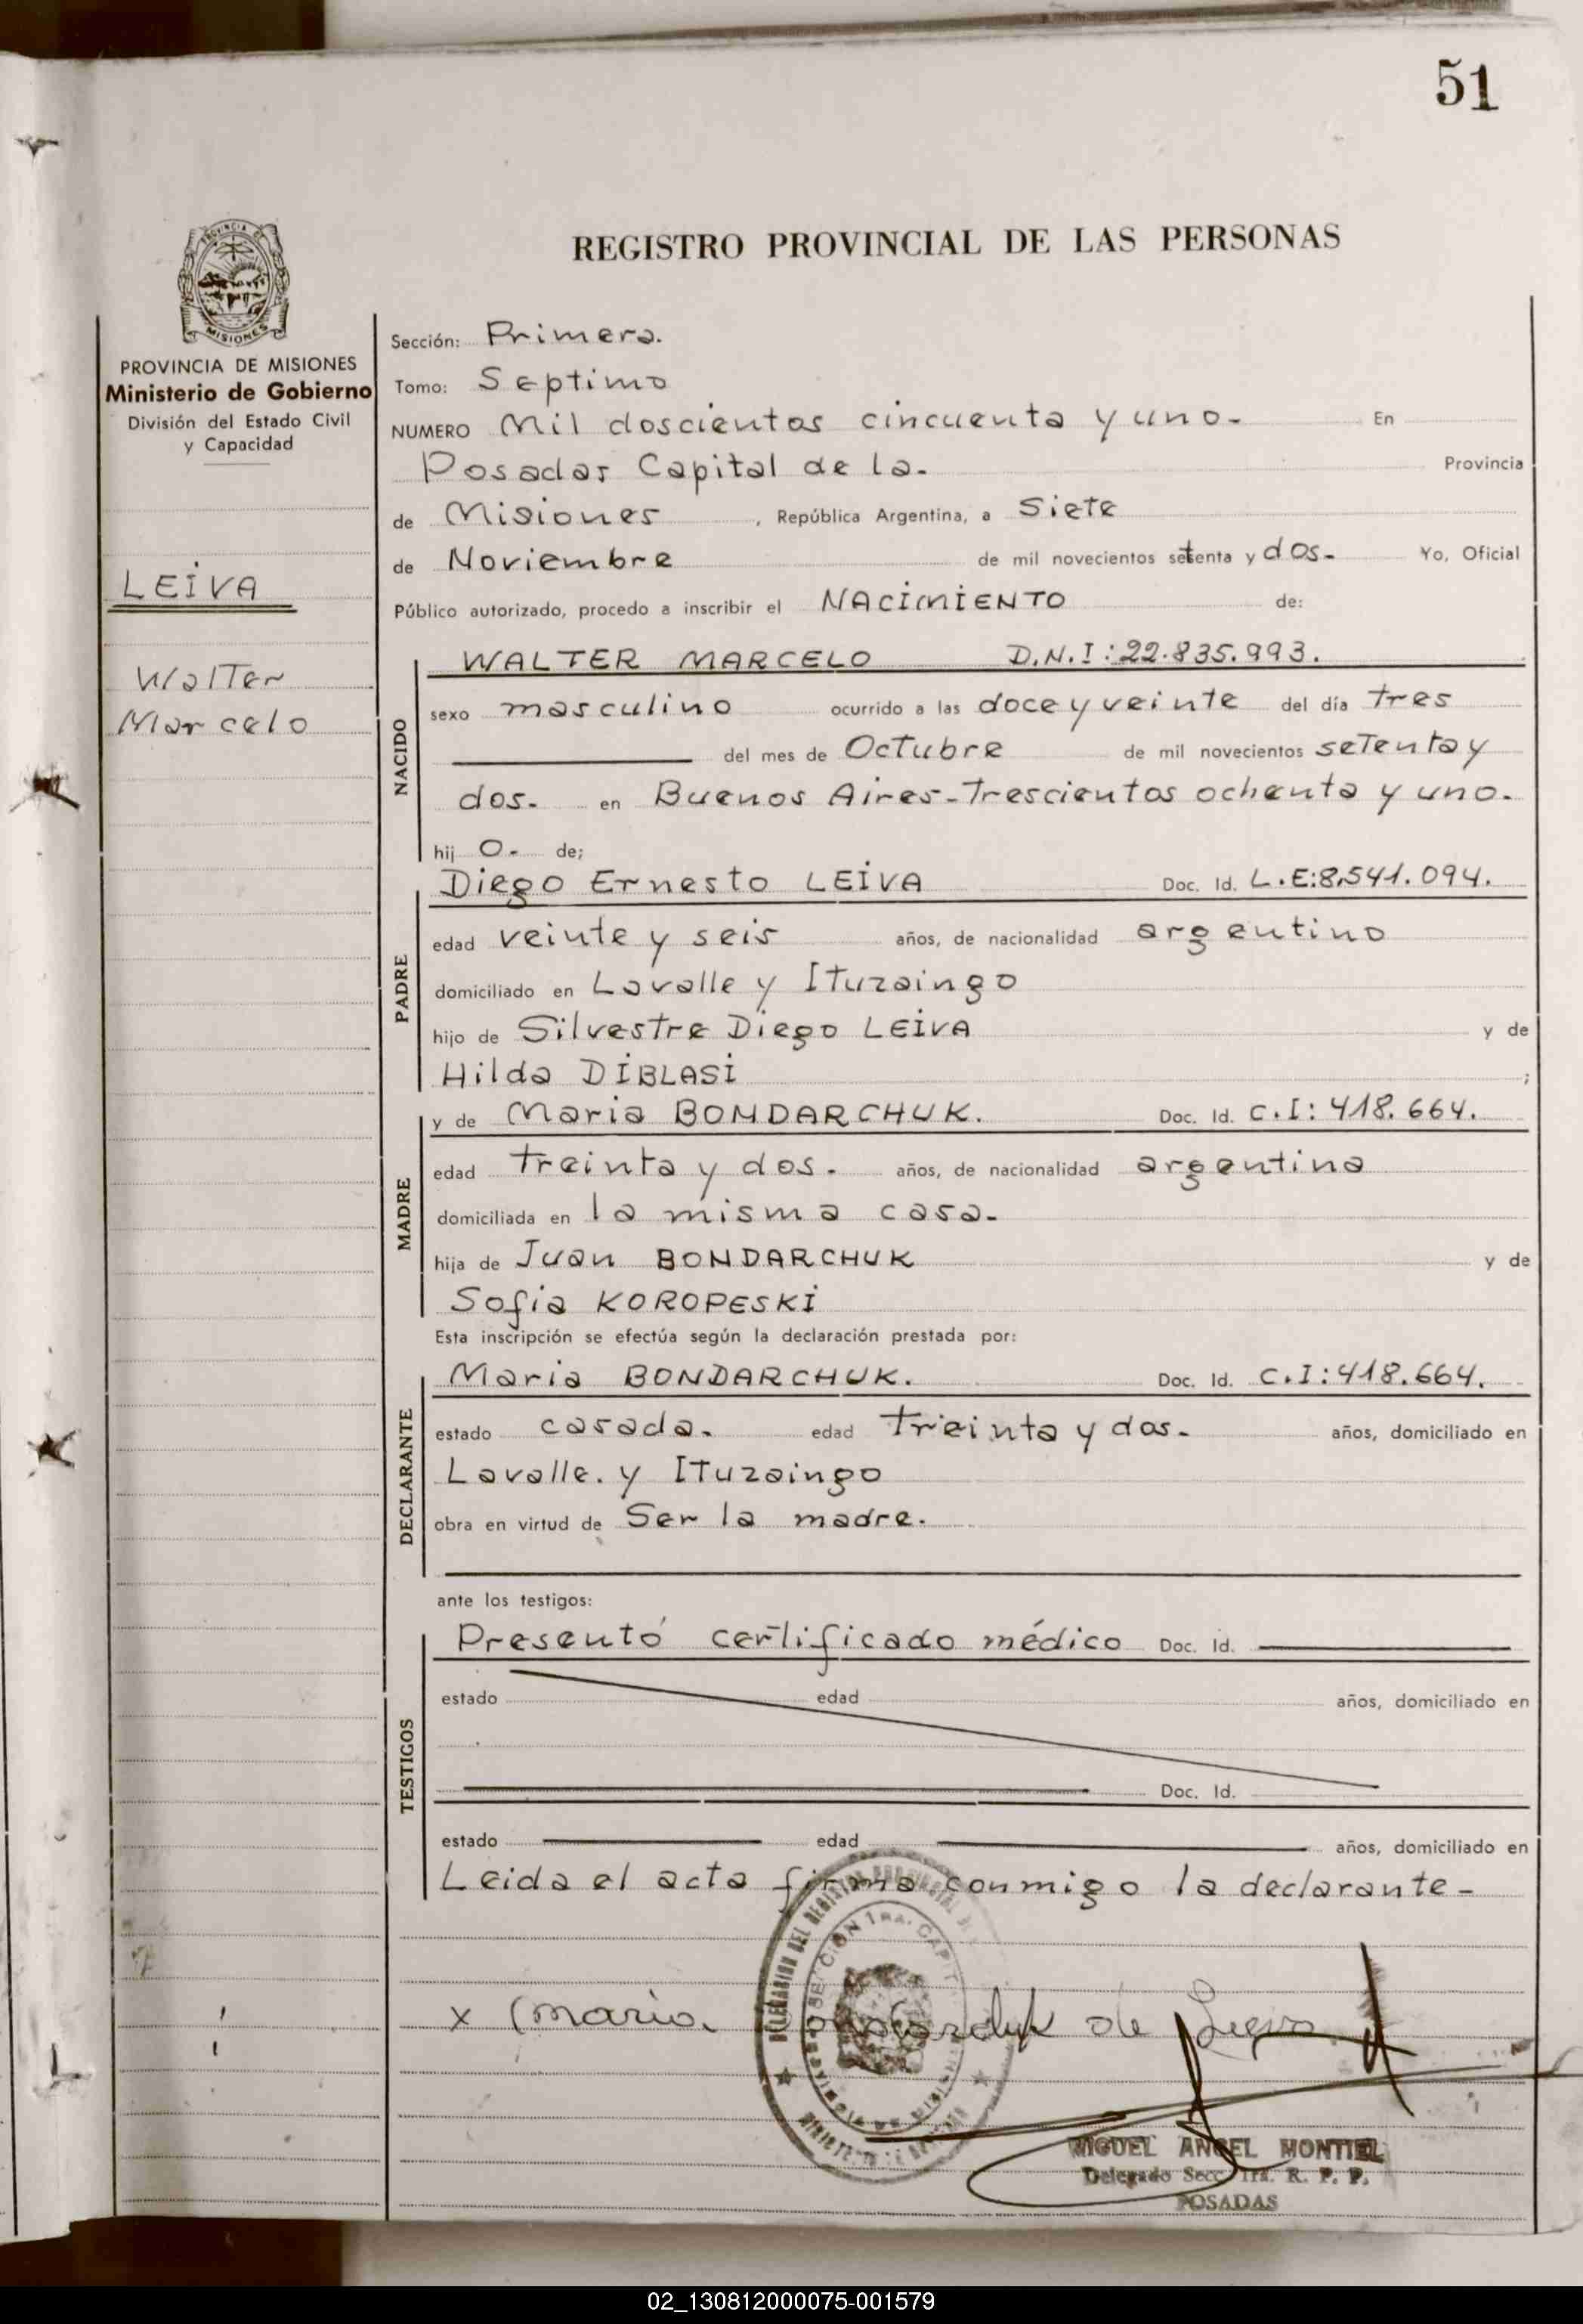 51
REGISTRO PROVINCIAL DE LAS PERSONAS
PROVINCIA DE
MISIONES
PROVINCIA DE MISIONES
Ministerio de Gobierno
División del Estado Civil
y Capacidad
LEIVA
Walter
Marcelo
Sección: Primera.
Tomo: Septimo
NUMERO Mil doscientos cincuenta y uno- En
Posadas Capital de la- Provincia
de Misiones, República Argentina, a Siete
de Noviembre de mil novecientos setenta y dos- Yo, Oficial
Público autorizado, procedo a inscribir el NACIMIENTO de:
NACIDO
WALTER MARCELO D.N.I: 22.835.993.
sexo masculino ocurrido a las doce y veinte del día Tres
del mes de Octubre de mil novecientos seTenta y
dos- en Buenos Aires-Trescientos ochenta y uno-
hij o- de;
PADRE
Diego Ernesto LEIVA Doc. Id. L.E:8.541.094.
edad veinte y seis años, de nacionalidad argentino
domiciliado en Lavalle y ITuzaingo
hijo de Silvestre Diego LEIVA y de
Hilda DIBLASI ;
MADRE
y de Maria BONDARCHUK. Doc. Id. C.I: 418.664.
edad Treinta y dos. años, de nacionalidad argentina
domiciliada en la misma casa-
hija de Juan BONDARCHUK y de
Sofia KOROPESKI
Esta inscripción se efectúa según la declaración prestada por:
DECLARANTE
Maria BONDARCHUK. Doc. Id. C.I:418.664.
estado casada. edad Treinta y dos- años, domiciliado en
Lavalle. y ITuzaingo
obra en virtud de Ser la madre.
ante los testigos:
TESTIGOS
Presentó certificado médico Doc. Id.
estado edad años, domiciliado en
Doc. Id.
estado edad años, domiciliado en
Leida el acta firma conmigo la declarante-
x Maria Bondarchuk de Leiva
DELEGACION DEL REGISTRO PROVINCIAL
SECCION 1ra. CAPIT
PROVINCIA DE MISIONES
MIGUEL ANGEL MONTIEL
Delegado Secc. 1ra. R. P. P.
POSADAS
02_130812000075-001579